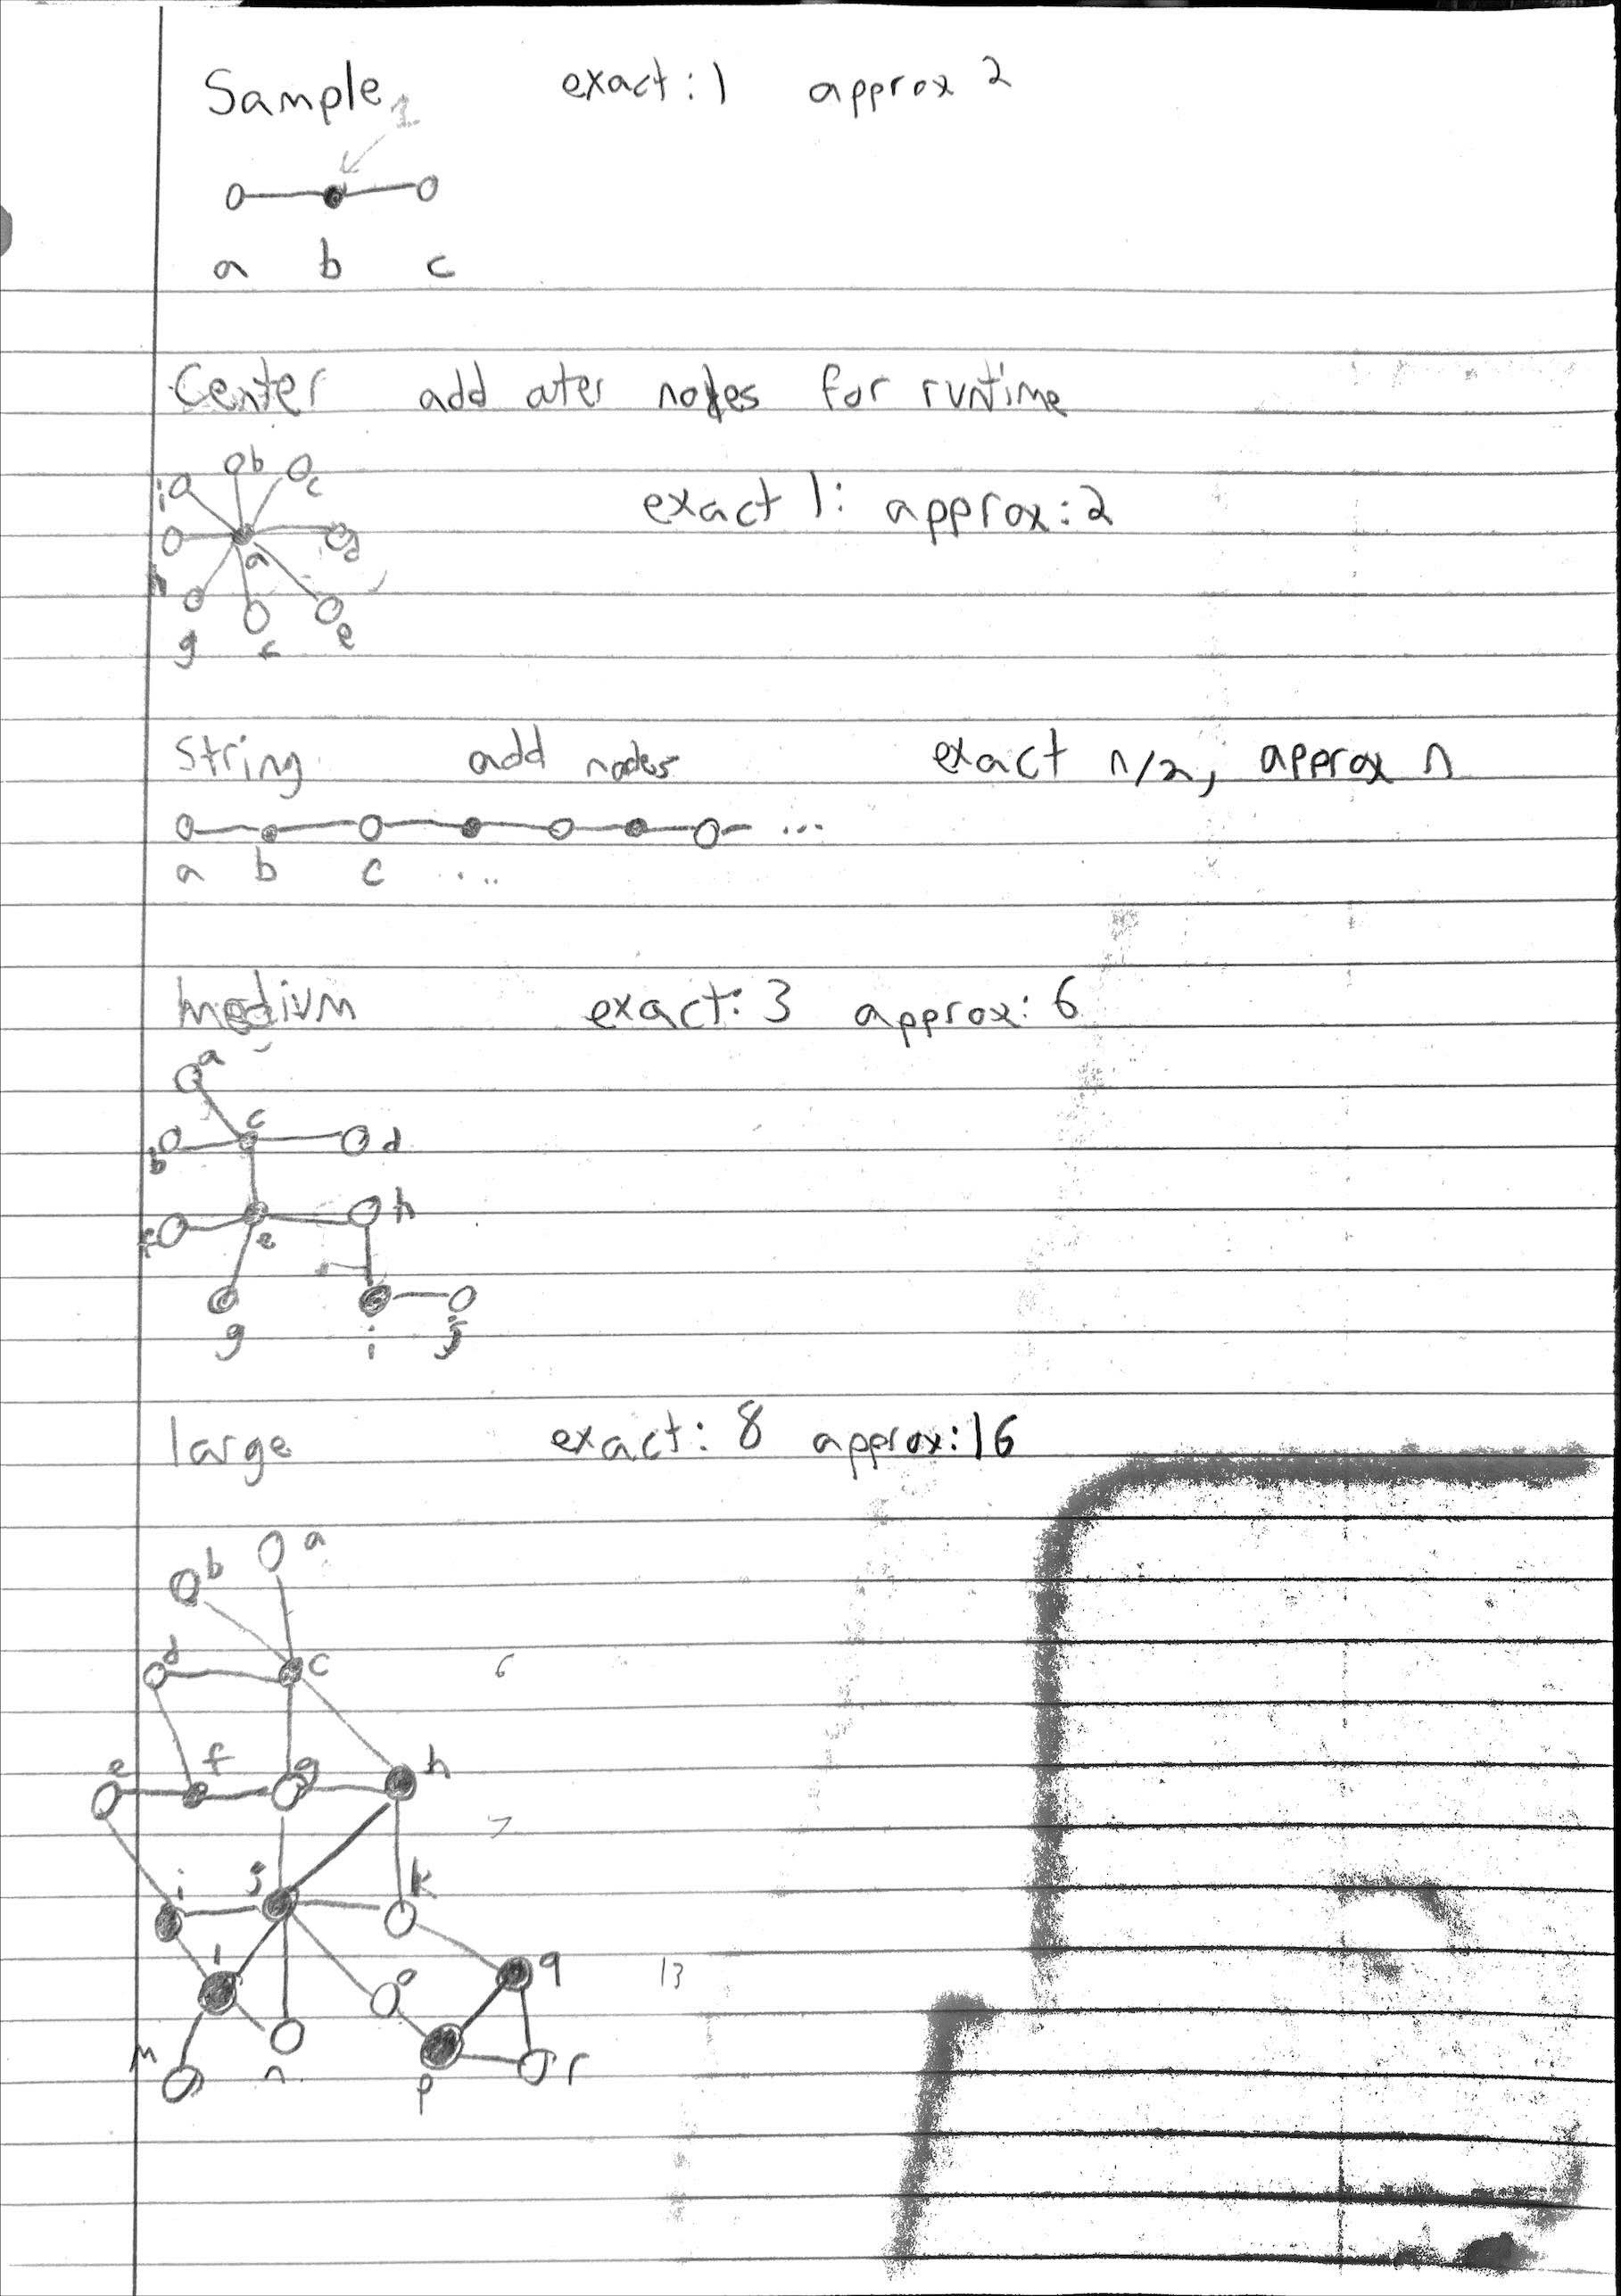 Sample exact: 1 approx 2
1
a b c
Center add ater nodes for runtime
b c
i
exact 1: approx: 2
d
a
h
g f e
String add nodes exact n/2, approx n
a b c ...
...
Medium exact: 3 approx: 6
a
c
b d
h
f e
g i j
large exact: 8 approx: 16
b a
d c 6
e f g h
7
i j k
l o q 13
m n p r